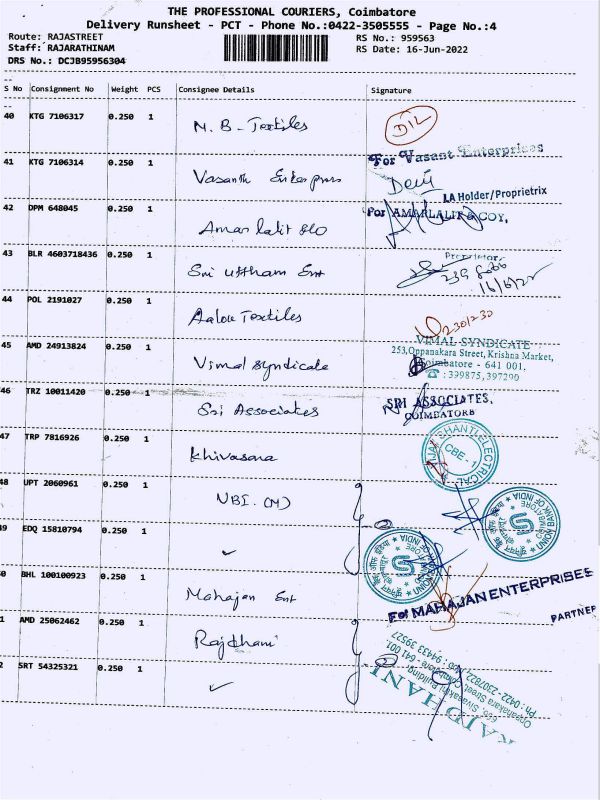 THE PROFESSIONAL COURIERS, Coimbatore
Delivery Runsheet - PCT - Phone No.:0422-3505555 - Page No.:4
Route: RAJASTREET
RS No.: 959563
Staff: RAJARATHINAM
RS Date: 16-Jun-2022
DRS No.: DCJB95956304
S No Consignment No Weight PCS Consignee Details Signature
40 KTG 7106317 0.250 1 M. B - Textiles DIL
41 KTG 7106314 0.250 1 Vasanth Enterprises
For Vasant Enterprises
LA Holder/Proprietrix
42 DPM 648045 0.250 1 Amar lalit &co
For AMARLALIT & COY,
43 BLR 4603718436 0.250 1 Sri Uttham Ent
Proprietor
16/6/22
44 POL 2191027 0.250 1 Textiles
45 AMD 24913824 0.250 1 Vimal Syndicate
VIMAL SYNDICATE
253, Oppanakara Street, Krishna Market,
Coimbatore - 641 001.
☎ : 399875, 397290
46 TRZ 10011420 0.250 1 Sri Associates
SRI ASSOCIATES,
COIMBATORE
47 TRP 7816926 0.250 1 Khivasara
SHANTI ELECTRICAL
CBE - 1
48 UPT 2060961 0.250 1 UBI. (M)
UNION BANK OF INDIA
COIMBATORE
49 EDQ 15810794 0.250 1 ✓
UNION BANK OF INDIA
0 BHL 100100923 0.250 1 Mahajan Ent
For MAHAJAN ENTERPRISES
PARTNER
1 AMD 25062462 0.250 1 Rajdhani
2 SRT 54325321 0.250 1 ✓
RAJDHANI
Oppanakara Street, Coimbatore - 641 001.
Ph : 0422 - 2307822,